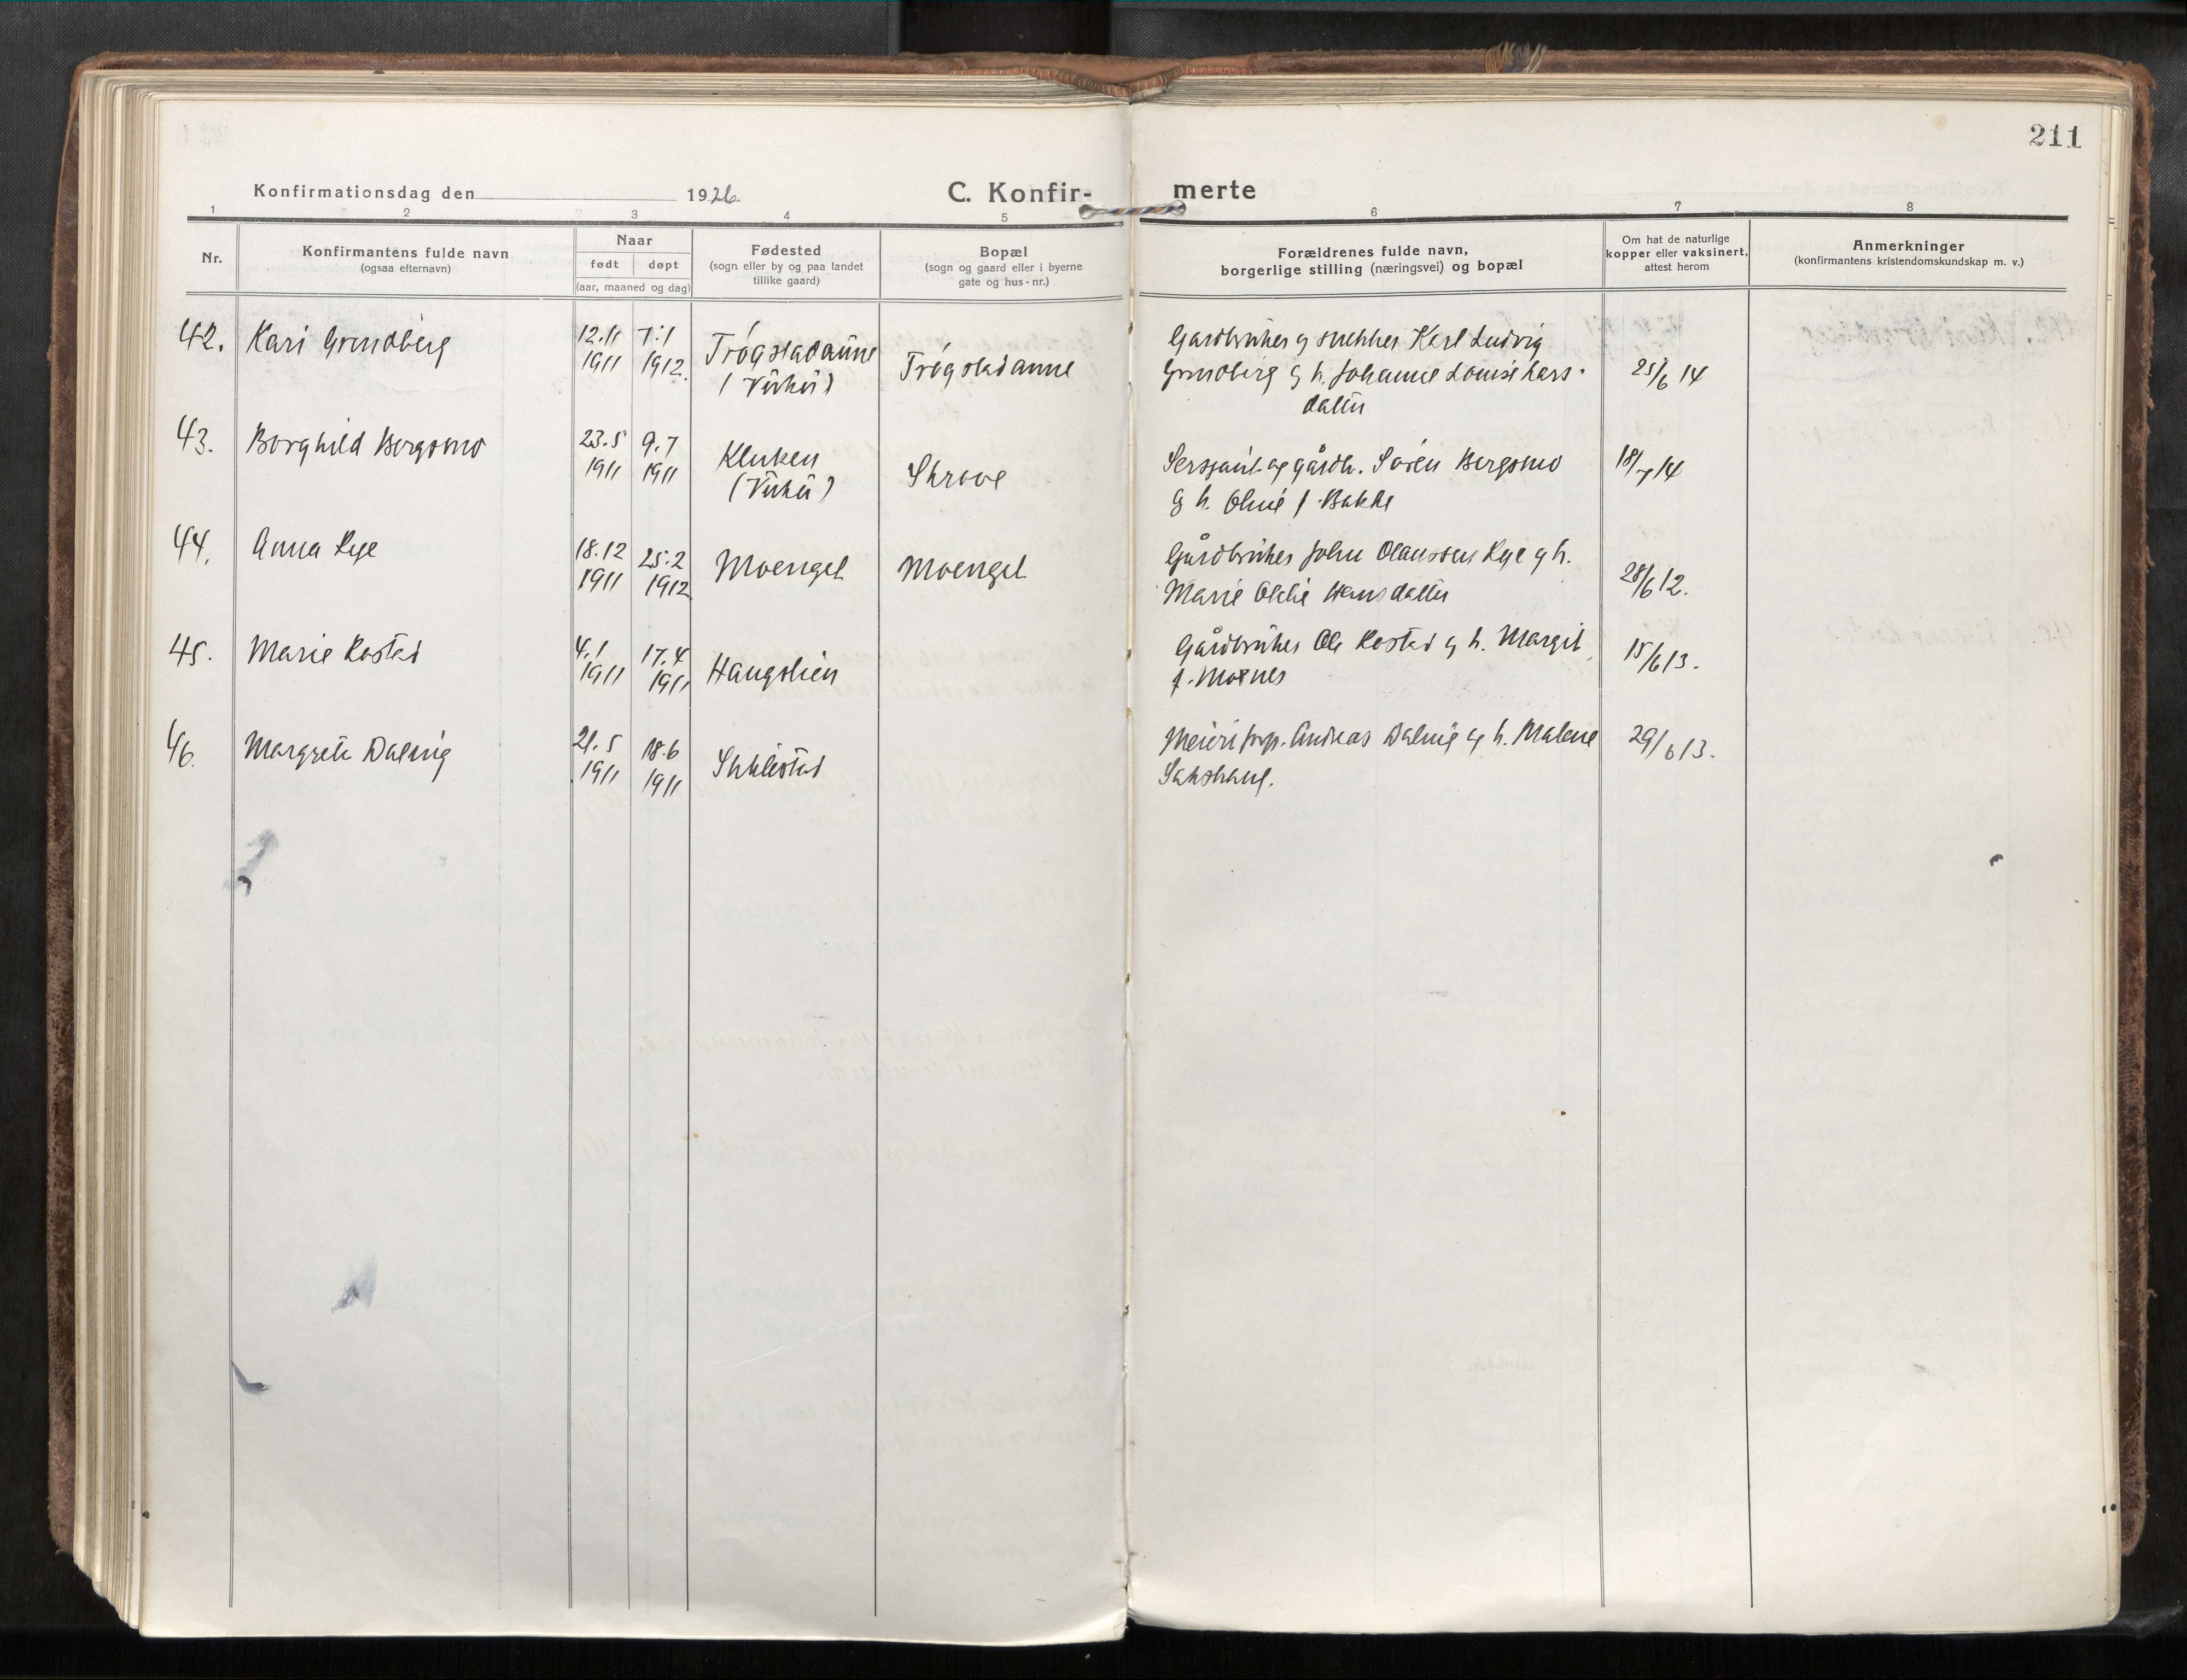 211
Konfirmationsdag den 1926.
C. Konfir-
merte
1
2
3
4
5
6
7
8
Nr.
Konfirmantens fulde navn
(ogsaa efternavn)
Naar
født
døpt
(aar, maaned og dag)
Fødested
(sogn eller by og paa landet
tillike gaard)
Bopæl
(sogn og gaard eller i byerne
gate og hus-nr.)
Forældrenes fulde navn,
borgerlige stilling (næringsvei) og bopæl
Om hat de naturlige
kopper eller vaksinert,
attest herom
Anmerkninger
(konfirmantens kristendomskundskap m. v.)
42.
Kari Grundberg
12.11
1911
7.1
1912.
Trøgstadaune
(Vuku)
Trøgstadaune
Gardbruker og snekker Karl Ludvig
Grundberg g h. Johanne Louise Lars-
datter
25/6 14
43.
Borghild Bergsmo
23.5
1911
9.7
1911
Kluken
(Vuku)
Skrove
Sersjant og gårdb. Søren Bergsmo
g h. Oline f. Bakke
18/7 14
44.
Anna Rye
18.12
1911
25.2
1912
Moenget
Moenget
Gårdbruker John Olaussen Rye g h.
Marie Hansdatter
28/6 12.
45.
Marie Rostad
4.1
1911
17.4
1911
Haugslien
Gårdbruker Ole Rostad g h. Margit
f. Moenes
15/6 13.
46.
Margrete Dalvig
21.5
1911
18.6
1911
Stiklestad
Meieri Andreas Dalvig og h. Malene
Sakshaug.
29/6 13.